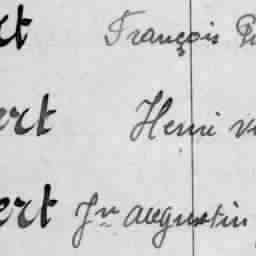 ct François
ert Henri
ert Jn augustin